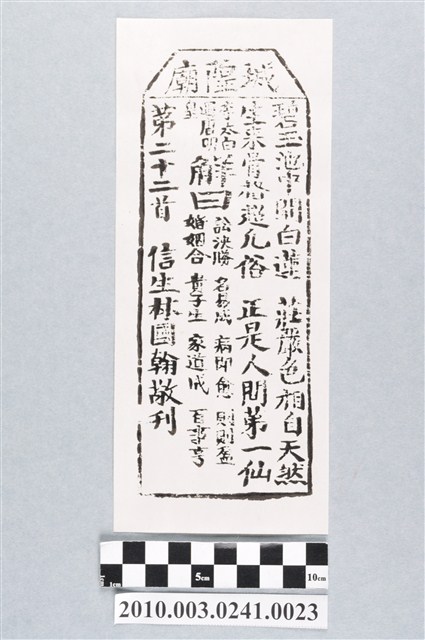 城隍廟
碧玉池中開白蓮 莊嚴色相自天然
生來骨格超凡俗 正是人間第一仙
李太白
遇唐明皇
解曰
訟決勝 名易成 病即愈 財則盈
婚姻合 貴子生 家道成 百事亨
第二十二首 信生林國翰敬刊
1cm 5cm 10cm
2010.003.0241.0023